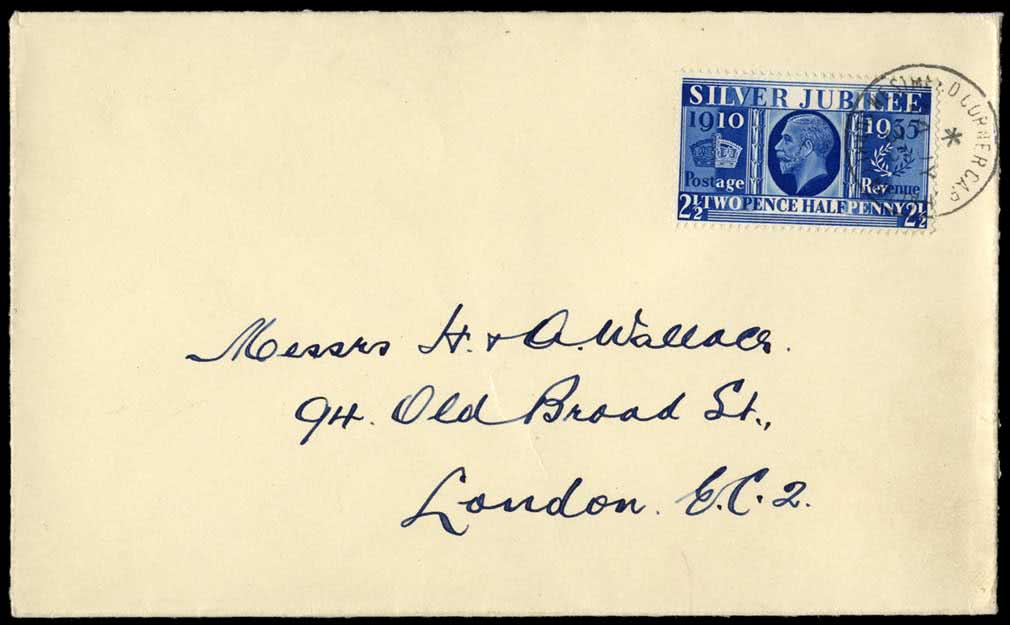 SILVER JUBILEE
1910 1935
Postage Revenue
2½ TWO PENCE HALFPENNY 2½
CORNER CAP
*
Messrs H. & A. Wallace.
94. Old Broad St.,
London. E.C.2.